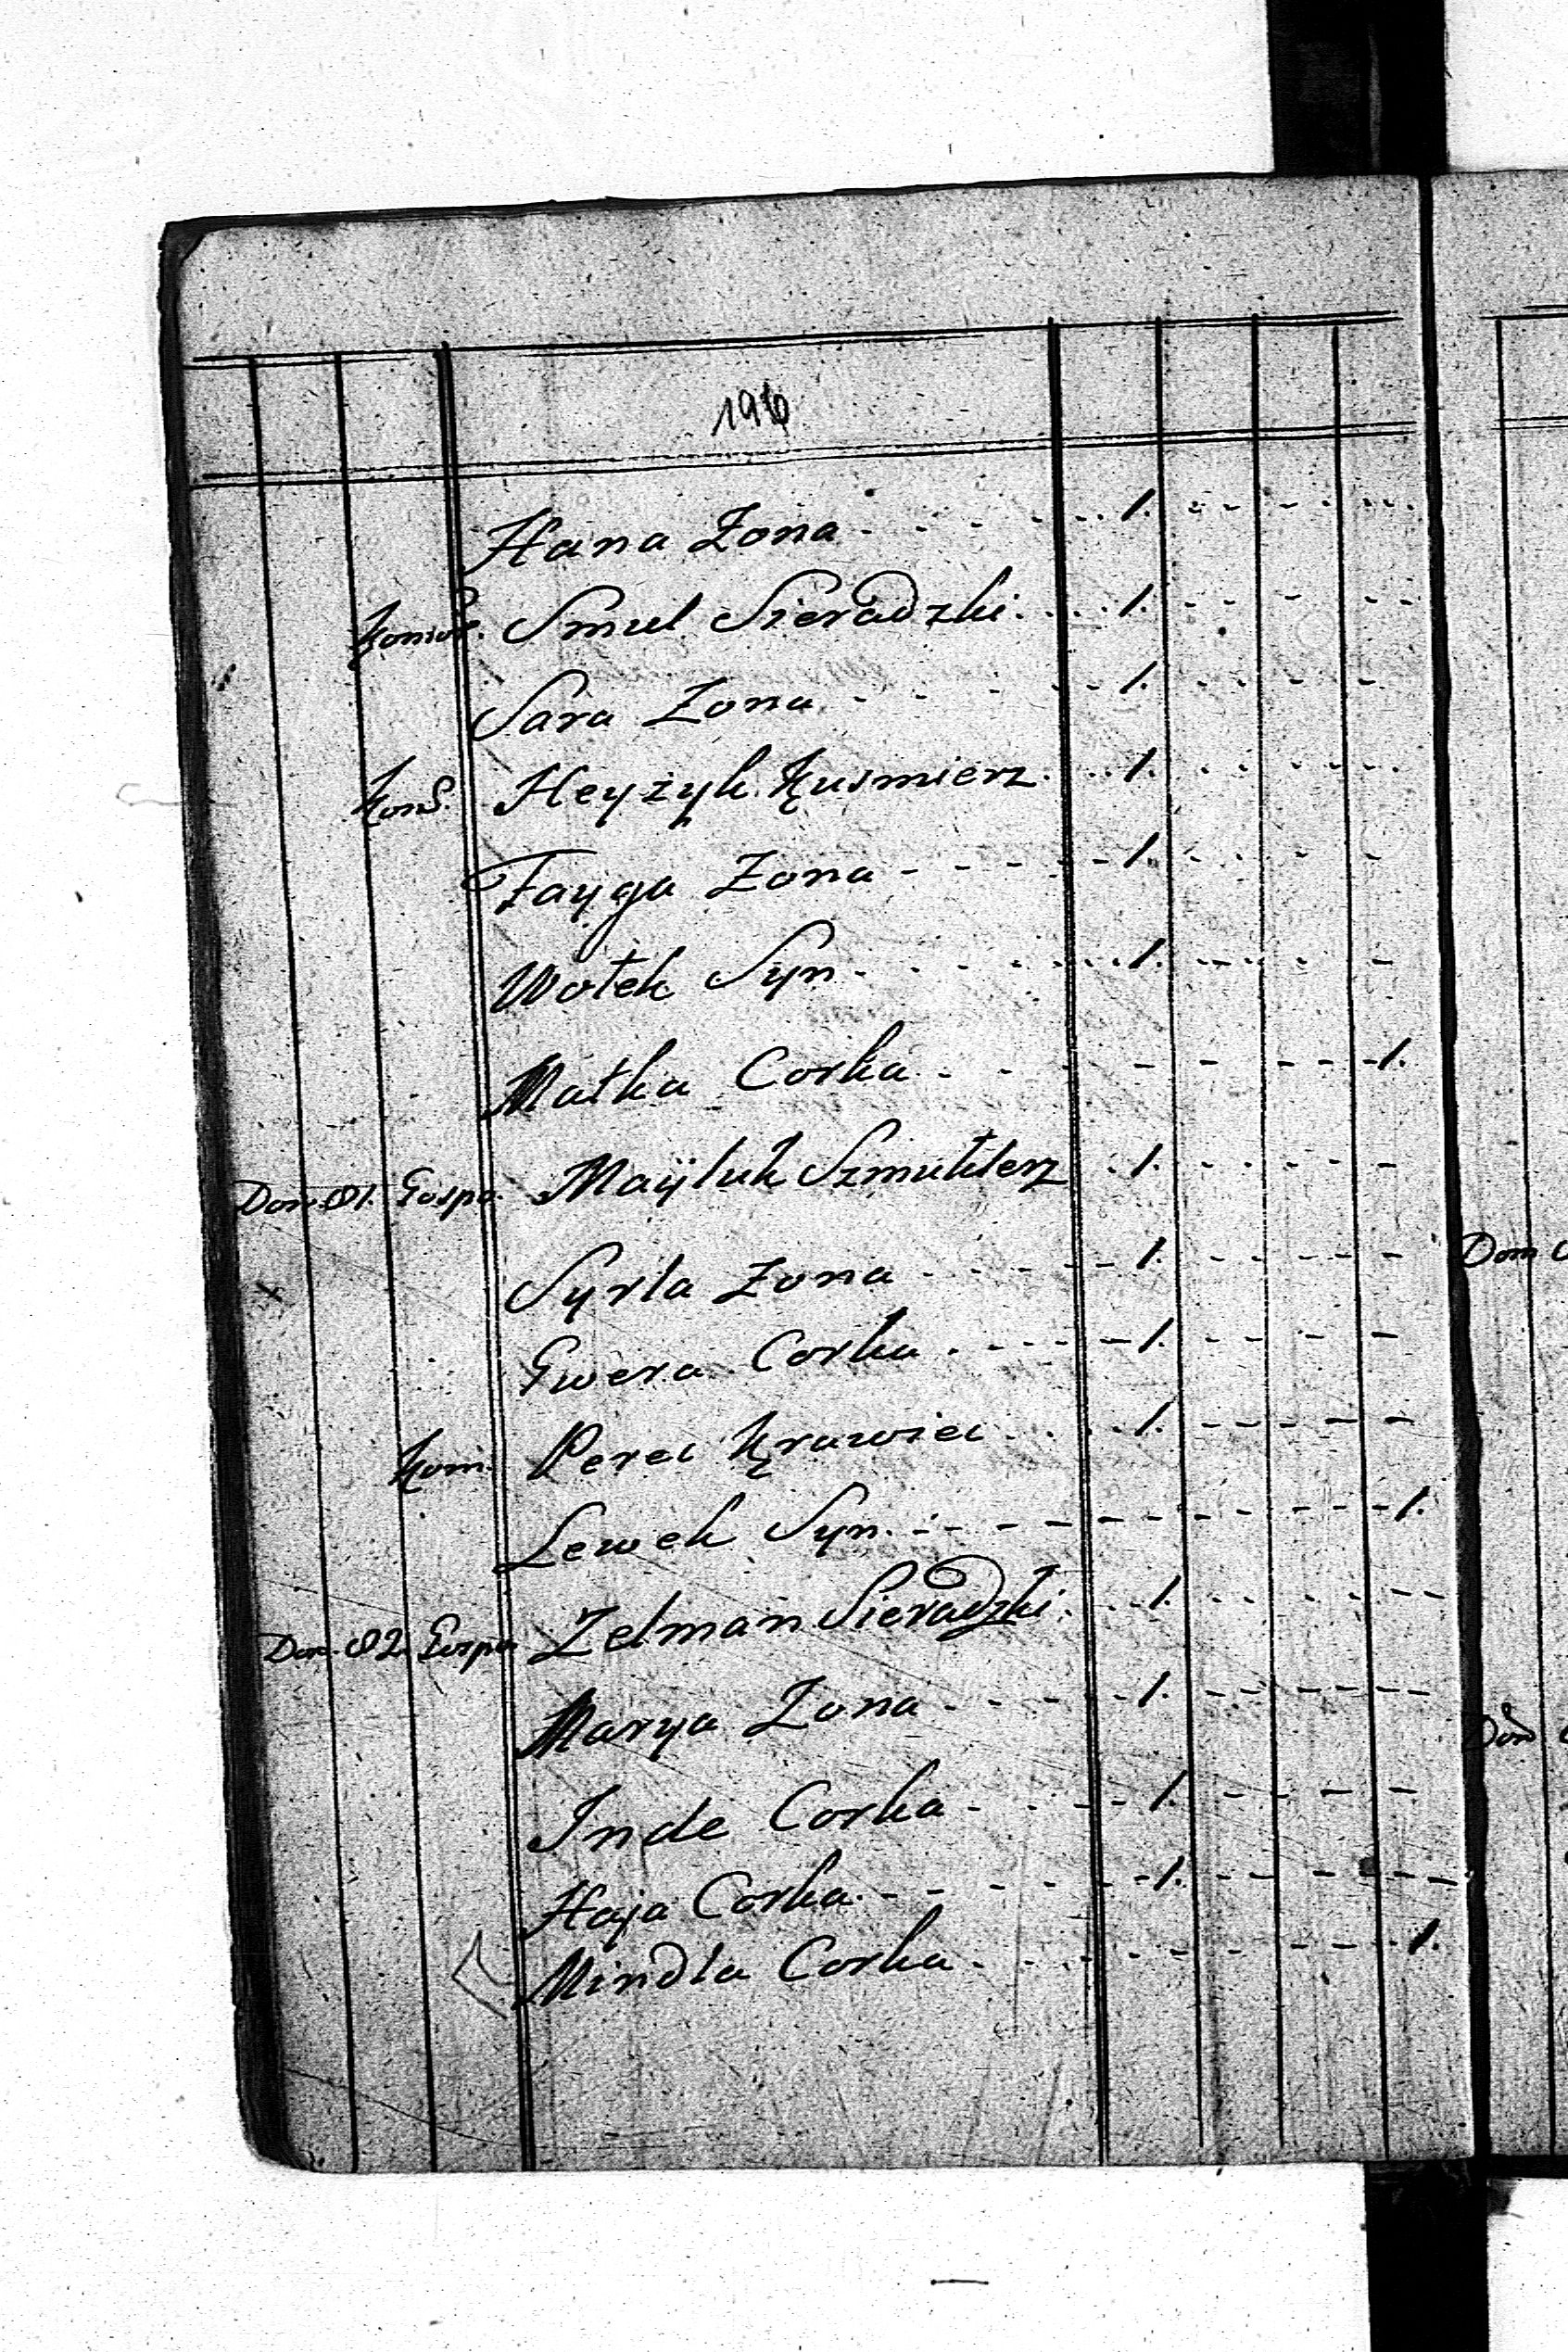 196
Hana Zona 1.
Komor. Smul Sieradzki 1.
Sara Zona 1.
Kom. Heyzyk Kusmierz 1.
Fayga Zona 1.
Wołek Syn 1.
Małka Corka 1.
Dom. 81. Gospo. Mayluk Szmuklerz 1.
Syrla Zona 1.
Gwera Corka 1.
Kom. Perec Krawiec 1.
Lewek Syn 1.
Dom. 82 Gospo. Zelman Sieradzki 1.
Marya Zona 1.
Inde Corka 1.
Haja Corka 1.
Mindla Corka 1.
Dom
Dom